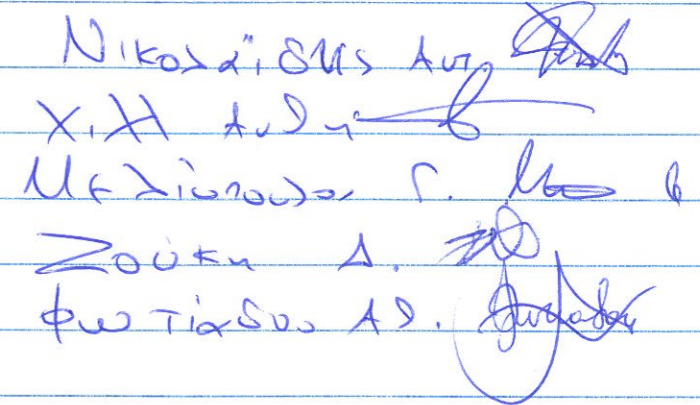 Νικολαΐδης Αντ.
Χιλλ Ανθή
Μελιόπουλος Γ.
Ζούκη Δ.
Φωτιάδου Αθ.